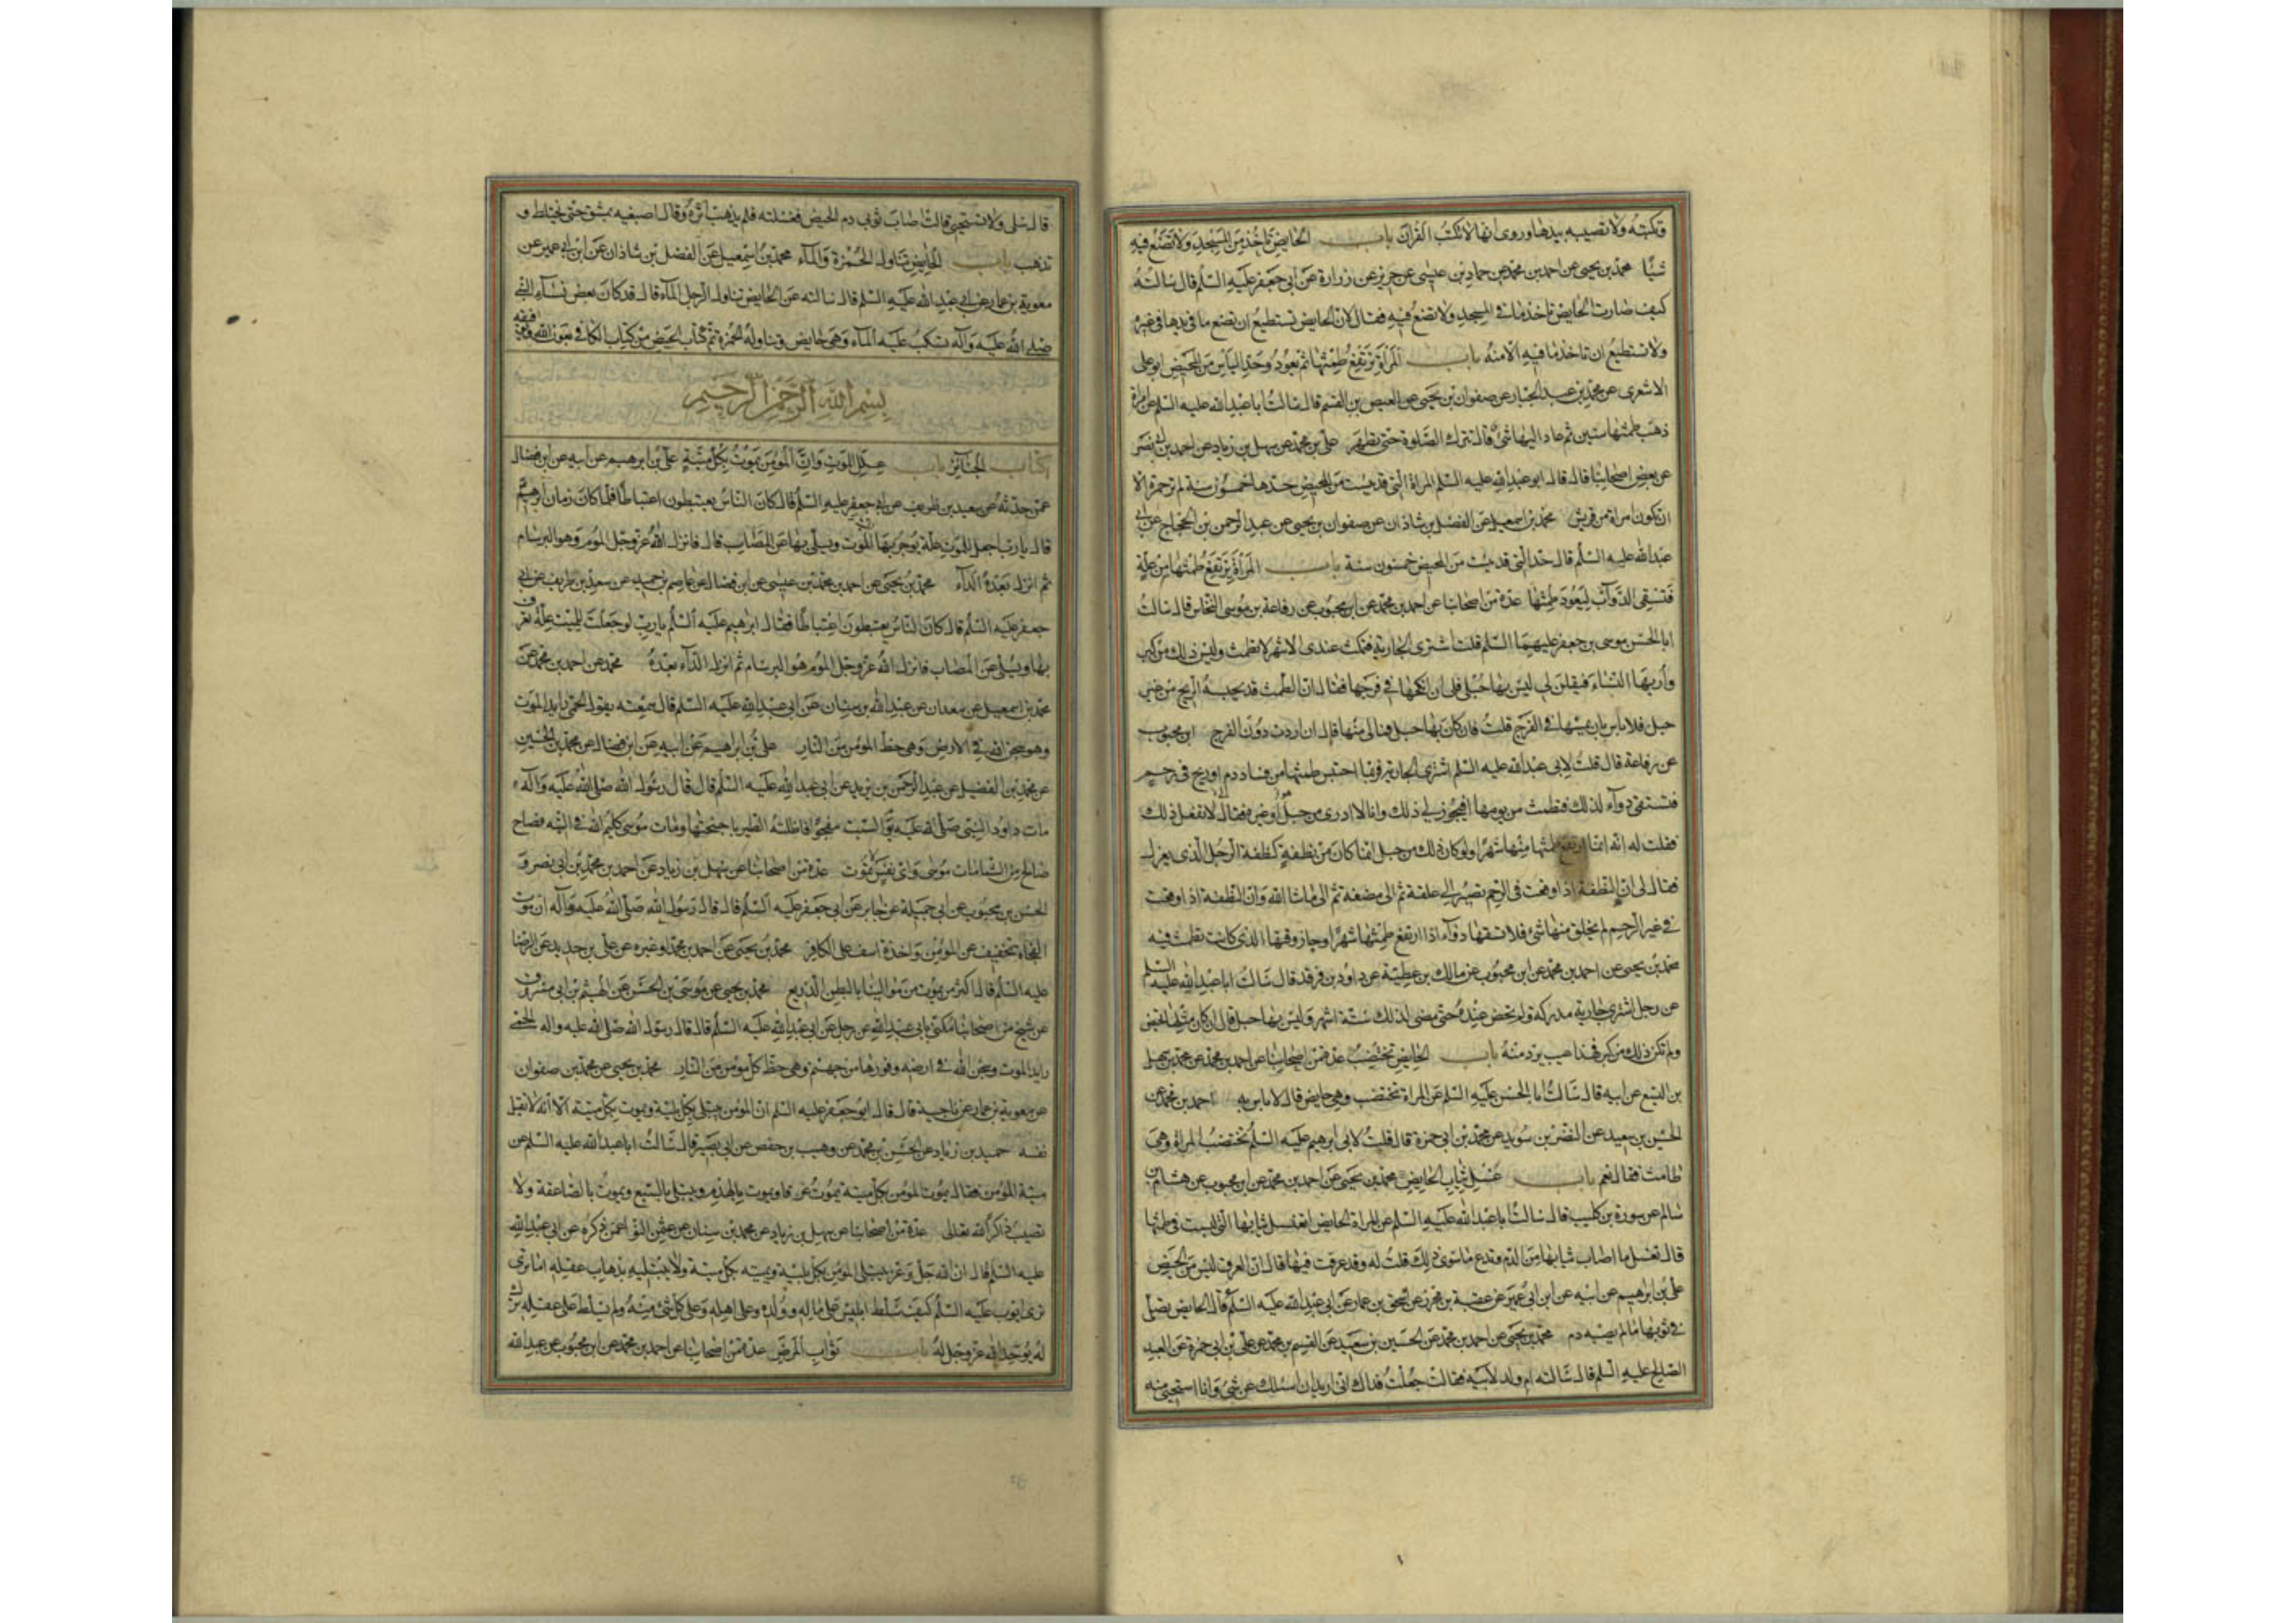 وتكتبه ولا تصيبه بيدها وروى انها لا تكتب القرآن باب الحايض تاخذ من المسجد ولا تضع فيه
شيئا محمد بن يحيى عن احمد بن محمد عن حماد بن عيسى عن حريز عن زرارة عن ابى جعفر عليه السلم قال سالته
كيف صارت الحايض تاخذ ما فى المسجد ولا تضع فيه فقال لان الحايض تستطيع ان تضع ما فى يدها فى غيره
ولا تستطيع ان تاخذ ما فيه الا منه باب المراة يرتفع طمثها ثم يعود وحد الياس من المحيض ابو على
الاشعرى عن محمد بن عبد الجبار عن صفوان بن يحيى عن العيص بن القسم قال سالت ابا عبد الله عليه السلم عن امراة
ذهب طمثها سنين ثم عاد اليها شئ قال تترك الصلوة حتى تطهر على بن محمد عن سهل بن زياد عن احمد بن ابى نصر
عن بعض اصحابنا قال قال ابو عبد الله عليه السلم المراة التى قد يئست من المحيض حدها خمسون سنة لم تر حمرة الا
ان تكون امراة من قريش محمد بن اسمعيل عن الفضل بن شاذان عن صفوان بن يحيى عن عبد الرحمن بن الحجاج عن ابى
عبد الله عليه السلم قال حد التى قد يئست من المحيض خمسون سنة باب المراة يرتفع طمثها من علة
فتسقى الدوآء ليعود طمثها عدة من اصحابنا عن احمد بن محمد عن ابن محبوب عن رفاعة بن موسى النخاس قال سالت
ابا الحسن موسى بن جعفر عليهما السلم قلت اشترى الجارية فتمكث عندى الاشهر لا تطمث وليس ذلك من كبر
واريها النساء فيقلن لى ليس بها حبل فلى ان انكحها فى فرجها فقال ان الطمث قد يحبسه الريح من غير
حبل فلا باس بان يمسها فى الفرج قلت فان كان بها حبل فما لى منها قال ان اردت دون الفرج ابن محبوب
عن رفاعة قال قلت لابى عبد الله عليه السلم اشترى الجارية فربما احتبس طمثها من فساد دم او ريح فى رحم
فتسقى دوآء لذلك فتطمث من يومها افيجوز لى ذلك وانا لا ادرى من حبل او غيره فقال لا تفعل ذلك
فقلت له انه انما ارتفع طمثها منها شهرا ولو كان ذلك من حبل انما كان من نطفة كنطفة الرجل الذى يعزل
فقال لى ان النطفة اذا وقعت فى الرحم تصير الى علقة ثم الى مضغة ثم الى ما شا الله وان النطفة اذا وقعت
فى غير الرحم لم يخلق منها شئ فلا تسقها دوآء اذا ارتفع طمثها شهرا وجاز وقتها الذى كانت تطمث فيه
محمد بن يحيى عن احمد بن محمد عن ابن محبوب عن مالك بن عطية عن داود بن فرقد قال سالت ابا عبد الله عليه السلم
عن رجل اشترى جارية مدركة ولم تحض عنده حتى مضى لذلك ستة اشهر وليس بها حبل قال ان كان مثلها تحيض
ولم تكن ذلك من كبر فهذا عيب يرد منه باب الحايض تختضب عدة من اصحابنا عن احمد بن محمد عن محمد بن سهل
بن اليسع عن ابيه قال سالت ابا الحسن عليه السلم عن المراة تختضب وهى حايض قال لا باس به احمد بن محمد عن
الحسين بن سعيد عن النضر بن سويد عن محمد بن ابى حمزة قال قلت لابى ابرهيم عليه السلم تختضب المراة وهى
طامث فقال نعم باب غسل ثياب الحايض محمد بن يحيى عن احمد بن محمد عن ابن محبوب عن هشام بن
سالم عن سورة بن كليب قال سالت ابا عبد الله عليه السلم عن المراة الحايض اتغسل ثيابها التى لبست فى طمثها
قال تغسل ما اصاب ثيابها من الدم وتدع ما سوى ذلك قلت له وقد عرقت فيها قال ان العرق ليس من الحيض
على بن ابرهيم عن ابيه عن ابن ابى عمير عن عقبة بن محرز عن اسحق بن عمار عن ابى عبد الله عليه السلم قال الحايض تصلى
فى ثوبها ما لم يصبه دم محمد بن يحيى عن احمد بن محمد عن الحسين بن سعيد عن القسم بن محمد عن على بن ابى حمزة عن العبد
الصالح عليه السلم قال سالته ام ولد لابيه فقالت جعلت فداك انى اريد ان اسئلك عن شئ وانا استحيى منه
قال سلى ولا تستحيى قالت اصاب ثوبى دم الحيض فغسلته فلم يذهب اثره وقال اصبغيه بمشق حتى يختلط و
تذهب باب الحايض تناول الخمرة والمآء محمد بن اسمعيل عن الفضل بن شاذان عن ابن ابى عمير عن
معوية بن عمار عن ابى عبد الله عليه السلم قال سالته عن الحايض تناول الرجل المآء قال قد كان بعض نسآء النبى
صلى الله عليه وآله تسكب عليه المآء وهى حايض وتناوله الخمرة تم كتاب الحيض من كتاب الكافى بعون الله
بسم الله الرحمن الرحيم
كتاب الجنائز باب علل الموت وان المؤمن يموت بكل ميتة على بن ابرهيم عن ابيه عن ابن فضال
عمن حدثه عن سعيد بن طريف عن ابى جعفر عليه السلم قال كان الناس يعتبطون اعتباطا فلما كان زمان ابرهيم
قال يا رب اجعل للموت علة يوجر بها الميت ويسلى بها عن المصايب قال فانزل الله عز وجل الموم وهو البرسام
ثم انزل بعده الدآء محمد بن يحيى عن احمد بن محمد بن عيسى عن ابن فضال عن عاصم بن حميد عن سعد بن طريف عن ابى
جعفر عليه السلم قال كان الناس يعتبطون اعتباطا فقال ابرهيم عليه السلم يا رب لو جعلت للميت علة يعرف
بها ويسلى عن المصاب فانزل الله عز وجل الموم هو البرسام ثم انزل الدآء بعده محمد عن احمد بن محمد عن
محمد بن اسمعيل عن سعدان عن عبد الله بن سنان عن ابى عبد الله عليه السلم قال سمعته يقول الحمى رايد الموت
وهو سجن الله فى الارض وهى حظ المؤمن من النار على بن ابراهيم عن ابيه عن ابن فضال عن محمد بن الحسين
عن محمد بن الفضيل عن عبد الرحمن بن يزيد عن ابى عبد الله عليه السلم قال قال رسول الله صلى الله عليه وآله
مات داود النبى صلى الله عليه يوم السبت مفجوا فاظلته الطير باجنحتها ومات موسى كليم الله فى التيه فصاح
صائح من السما مات موسى واى نفس تموت عدة من اصحابنا عن سهل بن زياد عن احمد بن محمد بن ابى نصر و
الحسن بن محبوب عن ابى جميلة عن جابر عن ابى جعفر عليه السلم قال قال رسول الله صلى الله عليه وآله ان موت
الفجاه تخفيف عن المؤمن واخذة اسف على الكافر محمد بن يحيى عن احمد بن محمد وغيره عن على بن حديد عن الرضا
عليه السلم قال اكثر من يموت من موالينا بالبطن الذريع محمد بن يحيى عن موسى بن الحسن عن الهيثم بن ابى مسروق
عن شيخ من اصحابنا يكنى بابى عبد الله عن رجل عن ابى عبد الله عليه السلم قال قال رسول الله صلى الله عليه وآله الحمى
رايد الموت وسجن الله فى ارضه وفورها من جهنم وهى حظ كل مؤمن من النار محمد بن يحيى عن محمد بن صفوان
عن معوية بن عمار عن ناجية قال قال ابو جعفر عليه السلم ان المؤمن يبتلى بكل بلية ويموت بكل ميتة الا انه لا يقتل
نفسه حميد بن زياد عن الحسن بن محمد عن وهيب بن حفص عن ابى بصير قال سالت ابا عبد الله عليه السلم عن
ميتة المؤمن فقال يموت المؤمن بكل ميتة يموت غرقا ويموت بالهدم ويبتلى بالسبع ويموت بالصاعقة ولا
تصيب ذاكر الله تعالى عدة من اصحابنا عن سهل بن زياد عن محمد بن سنان عن عثمن النوا عمن ذكره عن ابى عبد الله
عليه السلم قال ان الله جل وعز يبتلى المؤمن بكل بلية ويميته بكل ميتة ولا يبتليه بذهاب عقله اما ترى
ايوب عليه السلم كيف سلط ابليس على ماله وولده وعلى اهله وعلى كل شئ منه ولم يسلط على عقله ترك
له يوحد الله عز وجل له باب ثواب المرض عدة من اصحابنا عن احمد بن محمد عن ابن محبوب عن عبد الله